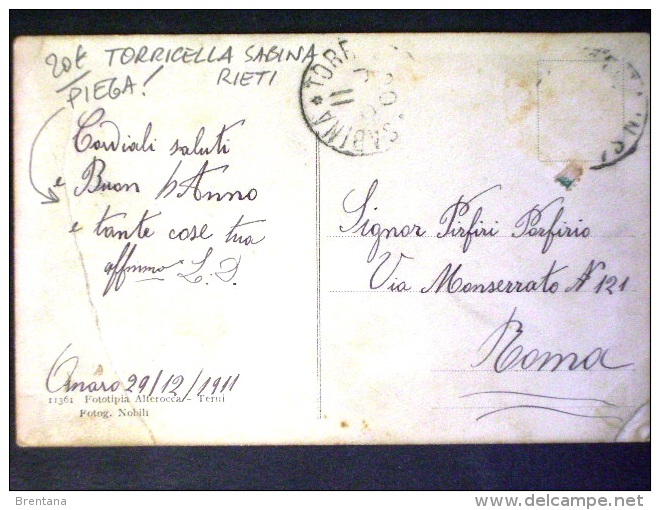 20€ TORRICELLA SABINA
RIETI
PIEGA!
TORR
SABINA
11
Cordiali saluti
e Buon Anno
e tante cose tua
affmma L. D.
29/12/1911
11361 Fototipia Alterocca - Terni
Fotog. Nobili
Signor Pirfiri Porfirio
Via Monserrato N 121
Roma
Brentana
delcampe.net